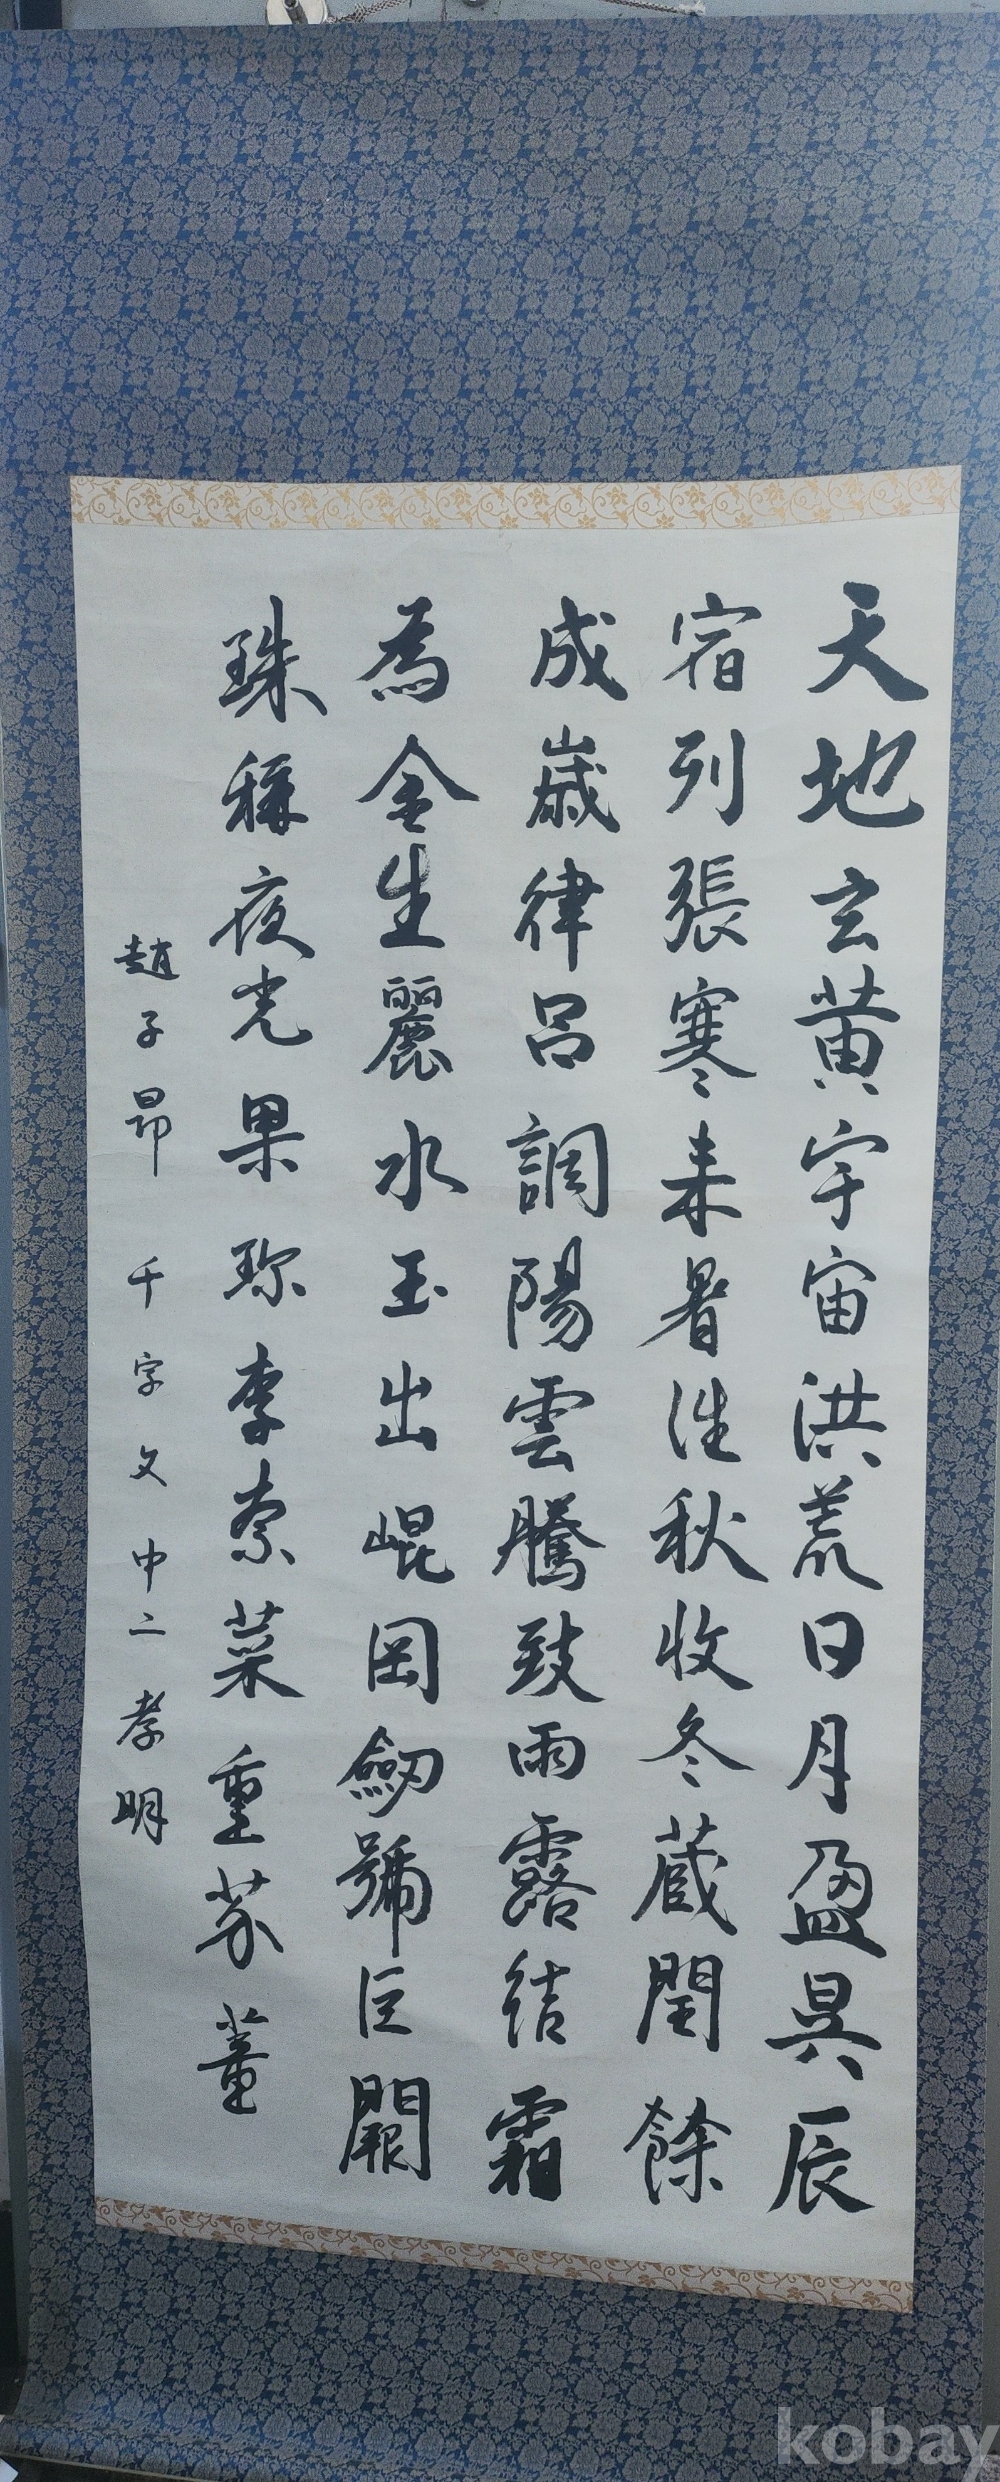 天地玄黄宇宙洪荒日月盈昃辰
宿列張寒来暑往秋收冬蔵閏餘
成歳律呂調陽雲騰致雨露結霜
為金生麗水玉出崐岡劒號巨闕
珠稱夜光果珎李柰菜重芥薑
趙子昂 千字文中 二孝明
kobay